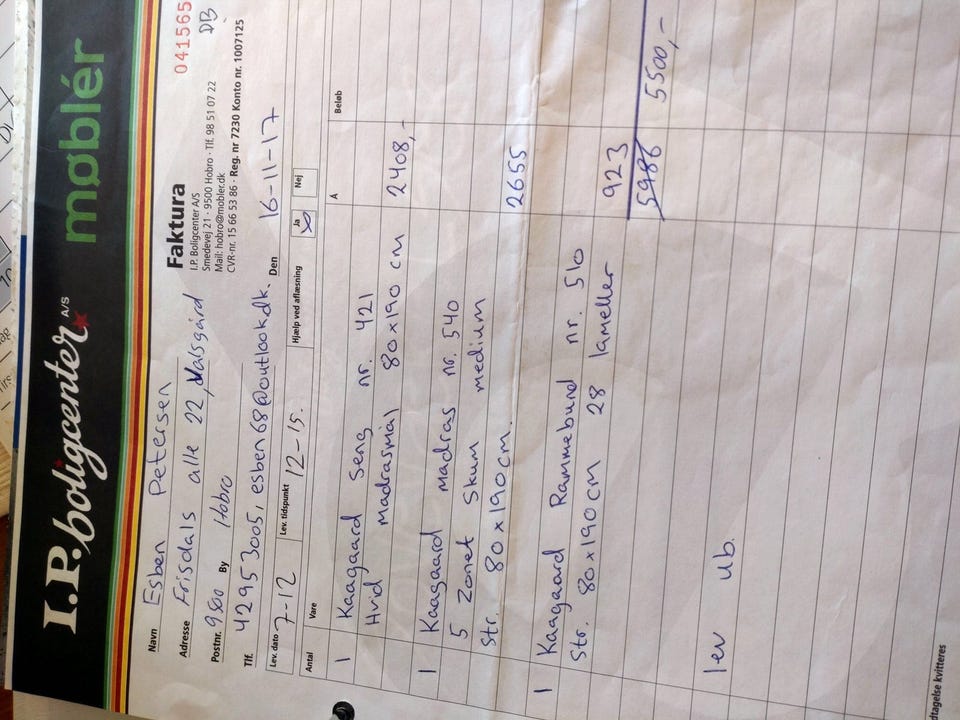 I.P. boligcenter A/S møblér
Faktura 041565
I.P. Boligcenter A/S DB
Smedevej 21 · 9500 Hobro · Tlf. 98 51 07 22
Mail: hobro@mobler.dk
CVR-nr. 15 66 53 86 · Reg. nr 7230 Konto nr. 1007125
Navn Esben Petersen
Adresse Frisdals alle 22, Valsgård
Postnr. 9500 By Hobro
Tlf. 42953005, esben68@outlook.dk. Den 16-11-17
Lev. dato 7-12 Lev. tidspunkt 12-15. Hjælp ved aflæsning Ja Nej
Antal Vare Á Beløb
1 Kaagaard Seng nr. 421
Hvid madrasmål 80x190 cm 2408,-
1 Kaagaard madras nr. 540
5 Zonet Skum medium
Str. 80x190cm. 2655
1 Kaagaard Rammebund nr. 510
Str. 80x190cm 28 lameller 923
5986 5500,-
lev ub.
dtagelse kvitteres